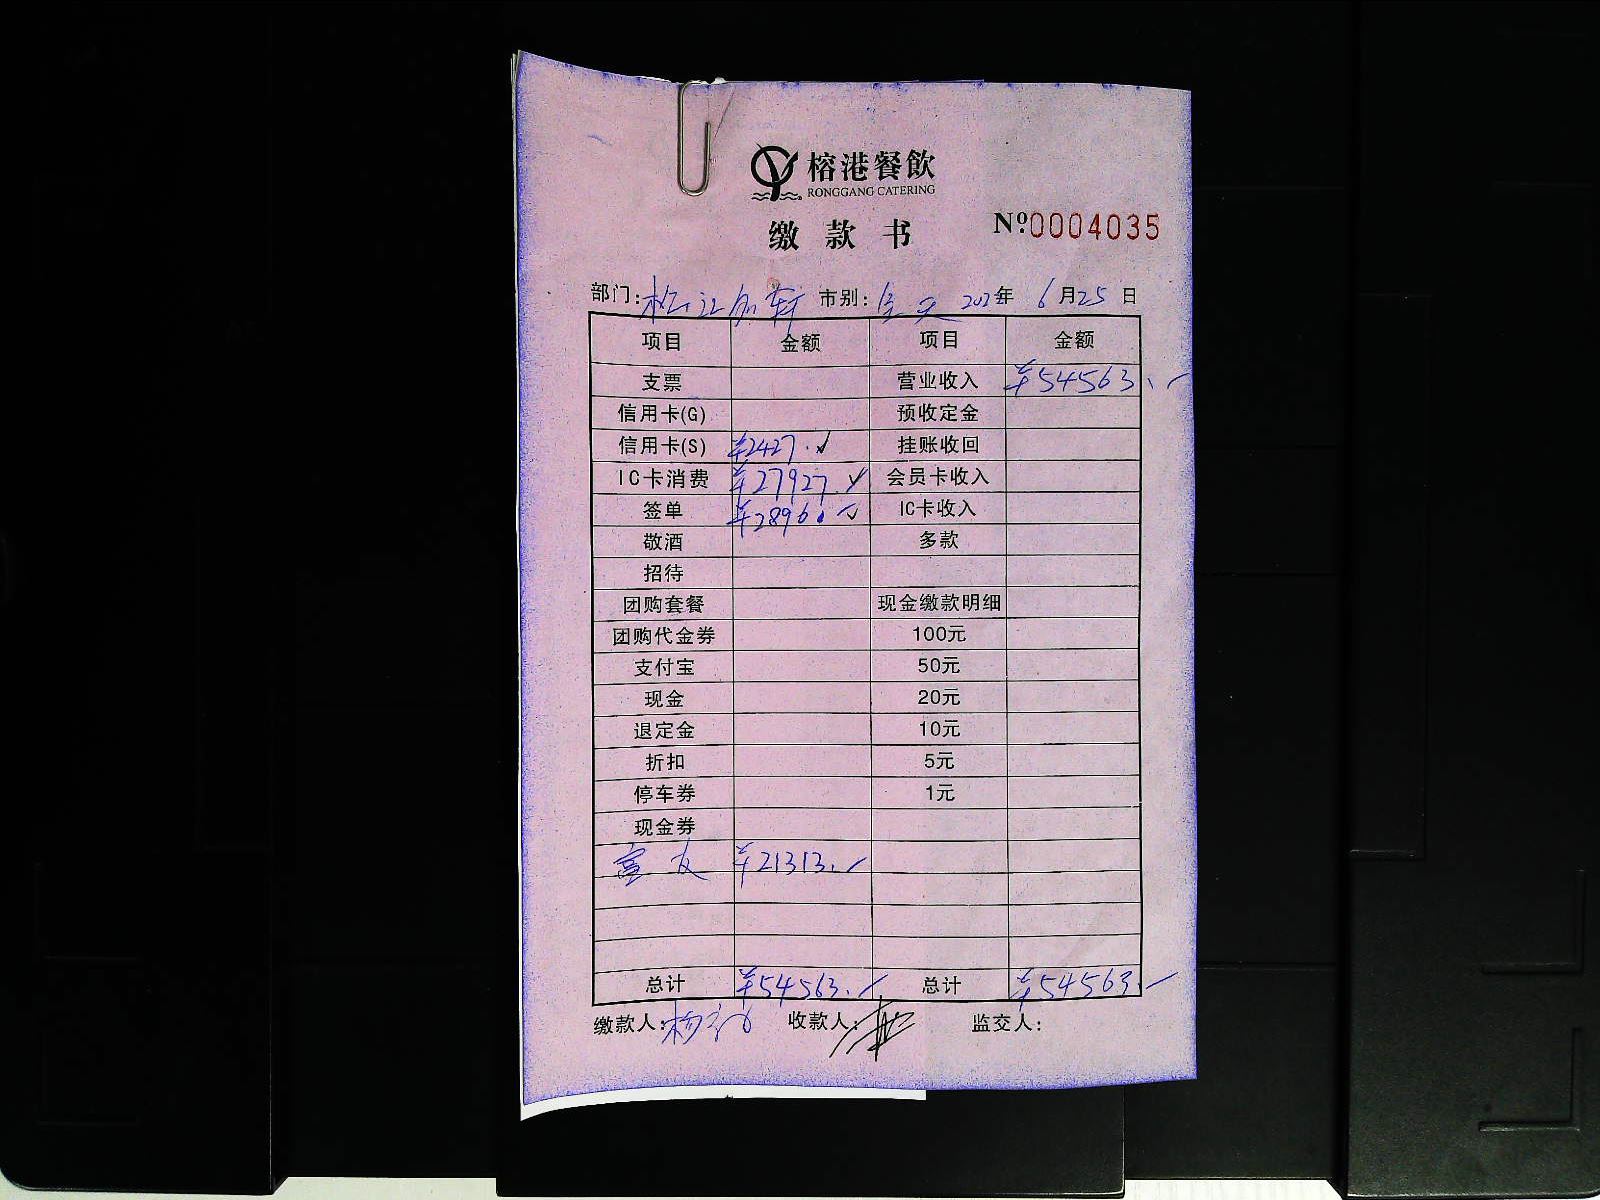 榕港餐飲
RONGGANG CATERING
缴款书
№0004035
部门: 松江 轩 市别: 全天 202 年 6月25日
项目 金额 项目 金额
支票 营业收入 ¥54563.
信用卡(G) 预收定金
信用卡(S) ¥2427. 挂账收回
IC卡消费 ¥27927. 会员卡收入
签单 ¥2896. IC卡收入
敬酒 多款
招待
团购套餐 现金缴款明细
团购代金券 100元
支付宝 50元
现金 20元
退定金 10元
折扣 5元
停车券 1元
现金券
¥21313.
总计 ¥54563. 总计 ¥54563.
缴款人: 杨 收款人: 监交人: